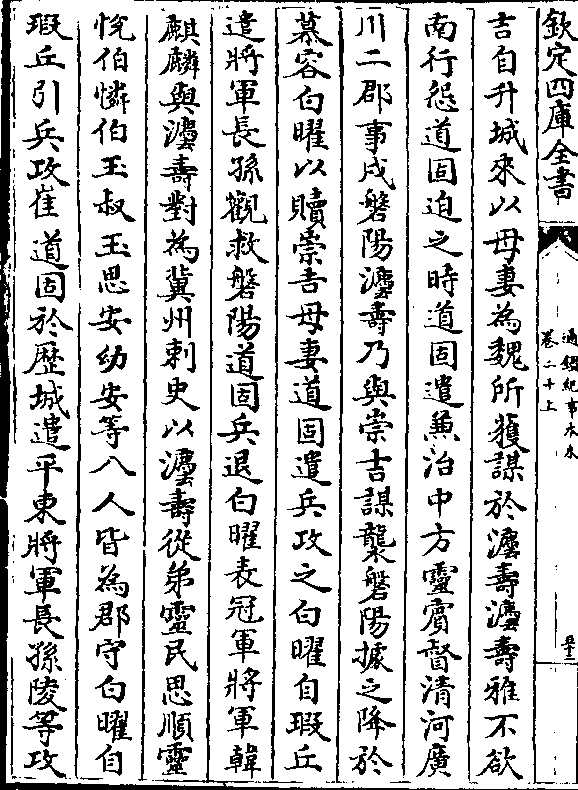 欽定四庫全書
通鑑紀事本末
卷二十上
五十三
吉自升城來以母妻為魏所獲謀於靈壽靈壽雅不欲
南行怨道固迫之時道固遣兼治中房靈賓督清河廣
川二郡事戍磐陽靈壽乃與崇吉謀襲磐陽據之降於
慕容白曜以贖崇吉母妻道固遣兵攻之白曜自瑕丘
遣將軍長孫觀救磐陽道固兵退白曜表冠軍將軍韓
麒麟與靈壽對為冀州刺史以靈壽從弟靈民思順靈
悅伯憐伯玉叔玉思安幼安等八人皆為郡守白曜自
瑕丘引兵攻崔道固於歷城遣平東將軍長孫陵等攻